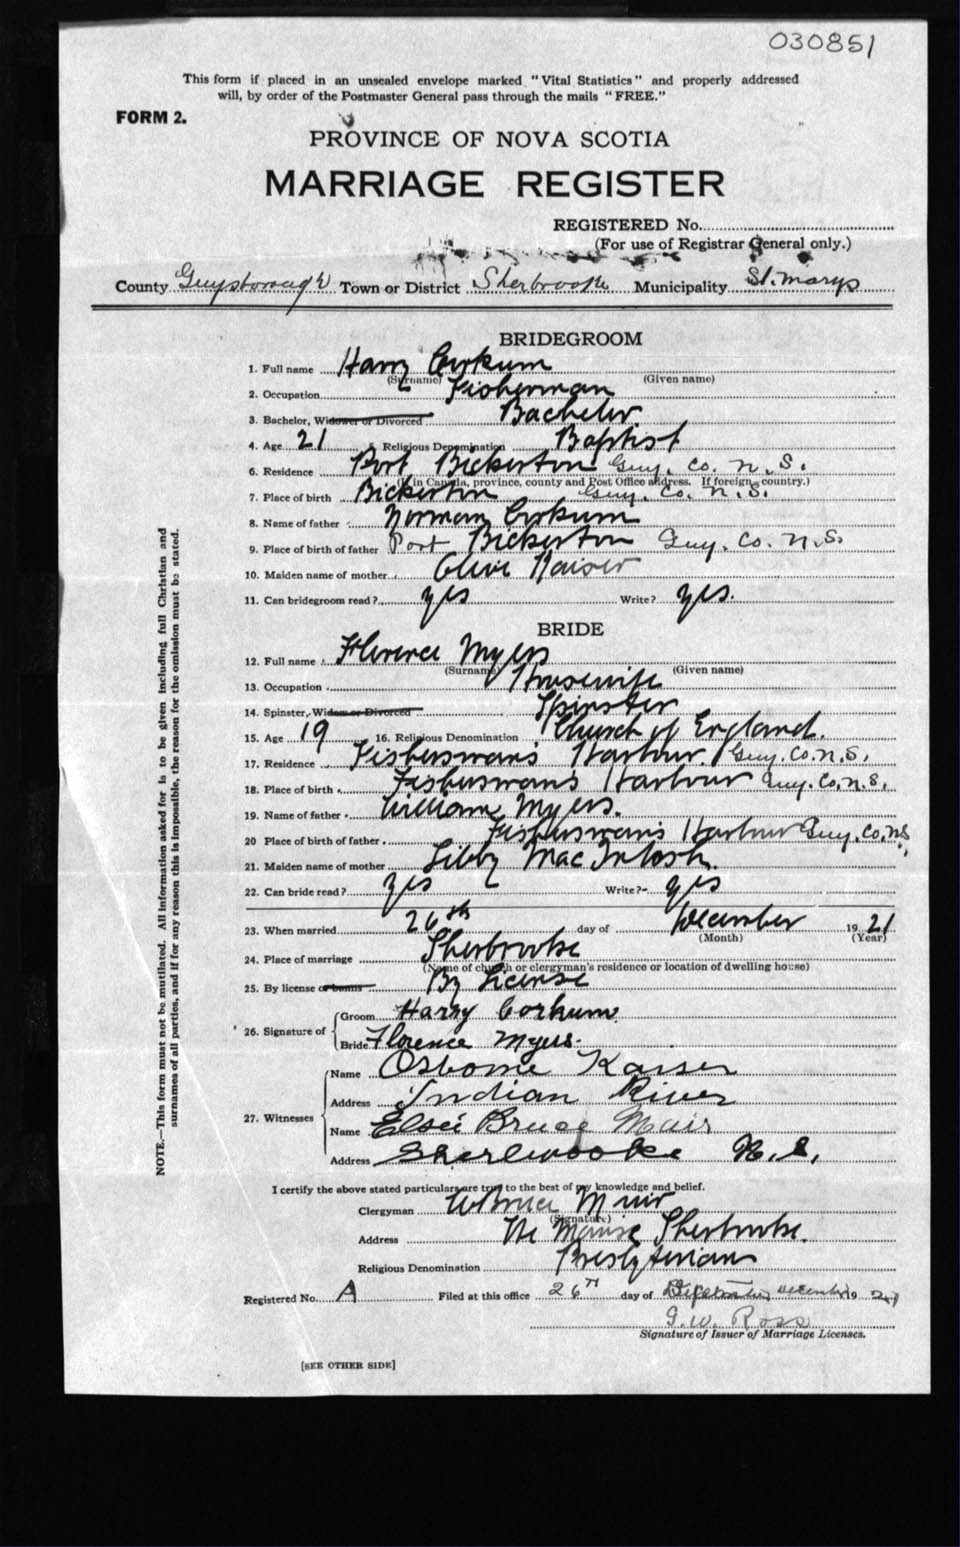 030851
This form if placed in an unsealed envelope marked "Vital Statistics" and properly addressed
will, by order of the Postmaster General pass through the mails "FREE."
FORM 2.
PROVINCE OF NOVA SCOTIA
MARRIAGE REGISTER
REGISTERED No.
(For use of Registrar General only.)
County Guysborough Town or District Sherbrooke Municipality St. Marys
BRIDEGROOM
1. Full name Harry Corkum
(Surname) (Given name)
2. Occupation Fisherman
3. Bachelor, Widower or Divorced Bachelor
4. Age 21 5. Religious Denomination Baptist
6. Residence Port Bickerton Guy. Co. N.S.
(If in Canada, province, county and Post Office address. If foreign, country.)
7. Place of birth Bickerton Guy. Co. N.S.
8. Name of father Norman Corkum
9. Place of birth of father Port Bickerton Guy. Co. N.S.
10. Maiden name of mother Olive Kaiser
11. Can bridegroom read? yes Write? yes.
BRIDE
12. Full name Florence Myers
(Surname) (Given name)
13. Occupation Housewife
14. Spinster, Widow or Divorced Spinster
15. Age 19 16. Religious Denomination Church of England.
17. Residence Fisherman's Harbour. Guy. Co. N.S.
18. Place of birth Fisherman's Harbour Guy. Co. N.S.
19. Name of father William Myers.
20 Place of birth of father Fisherman's Harbour Guy. Co. N.S.
21. Maiden name of mother Libby MacIntosh.
22. Can bride read? yes Write? yes
23. When married 26th day of December 1921
(Month) (Year)
24. Place of marriage Sherbrooke
(Name of church or clergyman's residence or location of dwelling house)
25. By license or banns By License
26. Signature of
Groom Harry Corkum
Bride Florence Myers.
27. Witnesses
Name Osborne Kaiser
Address Indian River
Name Elsie Bruce Muir
Address Sherbrooke N.S.
I certify the above stated particulars are true to the best of my knowledge and belief.
Clergyman W Bruce Muir
(Signature)
Address The Manse Sherbrooke.
Religious Denomination Presbyterian
Registered No. A Filed at this office 26TH day of December 1921
G. W. Ross
Signature of Issuer of Marriage Licenses.
[SEE OTHER SIDE]
NOTE.—This form must not be mutilated. All information asked for is to be given including full Christian and
surnames of all parties, and if for any reason this is impossible, the reason for the omission must be stated.